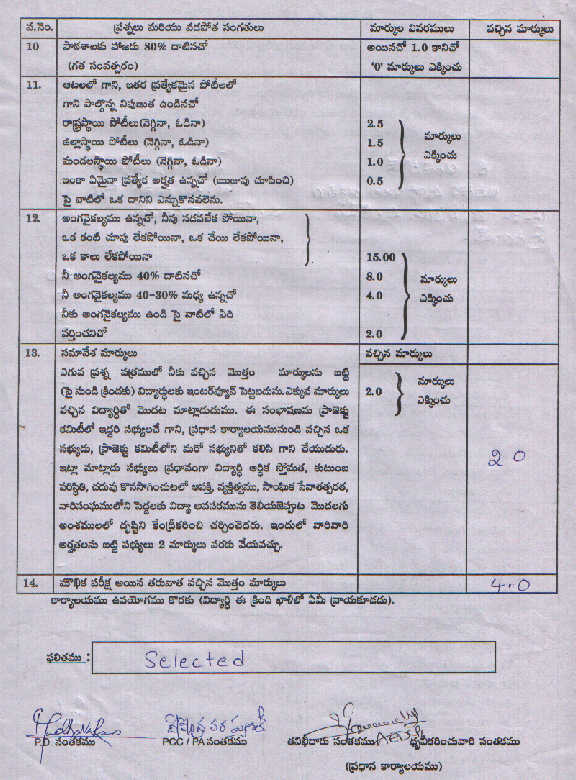 వ.నెం. ప్రశ్నలు మరియు వడపోత సంగతులు మార్కుల వివరములు వచ్చిన మార్కులు
10 పాఠశాలకు హాజరు 80% దాటినచో అయినచో 1.0 కానిచో
(గత సంవత్సరం) '0' మార్కులు ఎక్కించు
11. ఆటలలో గాని, ఇతర ప్రత్యేకమైన పోటీలలో
గాని పాల్గొన్న నిపుణుత ఉండినచో
రాష్ట్రస్థాయి పోటీలు(నెగ్గినా, ఓడినా) 2.5 మార్కులు
జిల్లాస్థాయి పోటీలు (నెగ్గినా, ఓడినా) 1.5 ఎక్కించు
మండలస్థాయి పోటీలు (నెగ్గినా, ఓడినా) 1.0
ఇంకా ఏమైనా ప్రత్యేక అర్హత ఉన్నచో (ఋజువు చూపించి) 0.5
పై వాటిలో ఒక దానిని ఎన్నుకొనవలెను.
12. అంగవైకల్యము ఉన్నచో, నీవు నడవలేక పోయినా,
ఒక కంటి చూపు లేకపోయినా, ఒక చేయి లేకపోయినా,
ఒక కాలు లేకపోయినా 15.00
నీ అంగవైకల్యము 40% దాటినచో 8.0 మార్కులు
నీ అంగవైకల్యము 40-30% మధ్య ఉన్నచో 4.0 ఎక్కించు
నీకు అంగవైకల్యము ఉండి పై వాటిలో ఏది
వర్తించనిచో 2.0
13. సమావేశ మార్కులు వచ్చిన మార్కులు
ఎగువ ప్రశ్న పత్రములో నీకు వచ్చిన మొత్తం మార్కులను బట్టి
(పై నుండి క్రిందకు) విద్యార్థులకు ఇంటర్వ్యూన్ పెట్టబడును.ఎక్కువ మార్కులు 2.0 మార్కులు ఎక్కించు
వచ్చిన విద్యార్థితో మొదట మాట్లాడుదుము. ఈ సంభాషణను ప్రాజెక్టు
కమిటీలో ఇద్దరి సభ్యులచే గాని, ప్రధాన కార్యాలయమునుండి వచ్చిన ఒక
సభ్యుడు, ప్రాజెక్టు కమిటీలోని మరో సభ్యునితో కలిసి గాని చేయుదురు. 20
ఇట్లా మాట్లాడు సభ్యులు ప్రధానంగా విద్యార్థి ఆర్థిక స్తోమత, కుటుంబ
పరిస్థితి, చదువు కొనసాగించుటలో ఆసక్తి, వ్యక్తిత్వము, సాంఘిక సేవాతత్పరత,
వారిసంఘములోని పెద్దలకు విద్యా అవసరమును తెలియజెప్పుట మొదలగు
అంశములలో దృష్టిని కేంద్రీకరించి చర్చించెదరు. ఇందులో వారివారి
అర్హతలను బట్టి సభ్యులు 2 మార్కులు వరకు వేయవచ్చు.
14. మౌఖిక పరీక్ష అయిన తరువాత వచ్చిన మొత్తం మార్కులు 4.0
కార్యాలయము ఉపయోగము కొరకు (విద్యార్థి ఈ క్రింది ఖాళీలో ఏమీ వ్రాయకూడదు).
ఫలితము : Selected
P.D సంతకము PGC / PA సంతకము తనిఖీదారు సంతకము ధృవీకరించువారి సంతకము
(ప్రధాన కార్యాలయము)